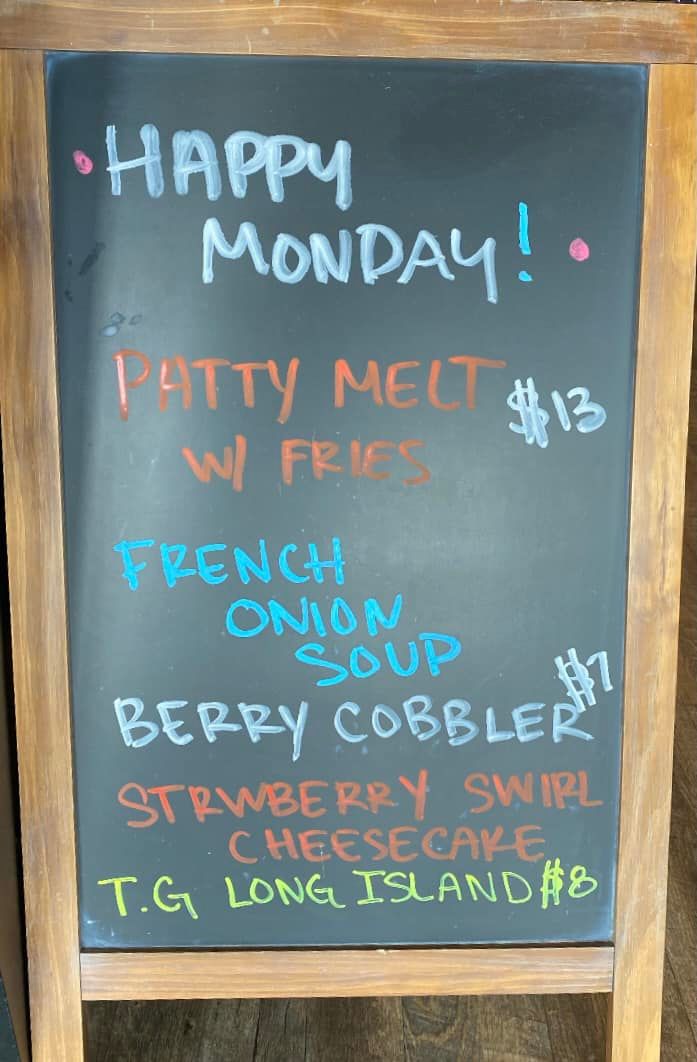 HAPPY
MONDAY!
PATTY MELT $13
W/ FRIES
FRENCH
ONION
SOUP
BERRY COBBLER $7
STRWBERRY SWIRL
CHEESECAKE
T.G LONG ISLAND $8